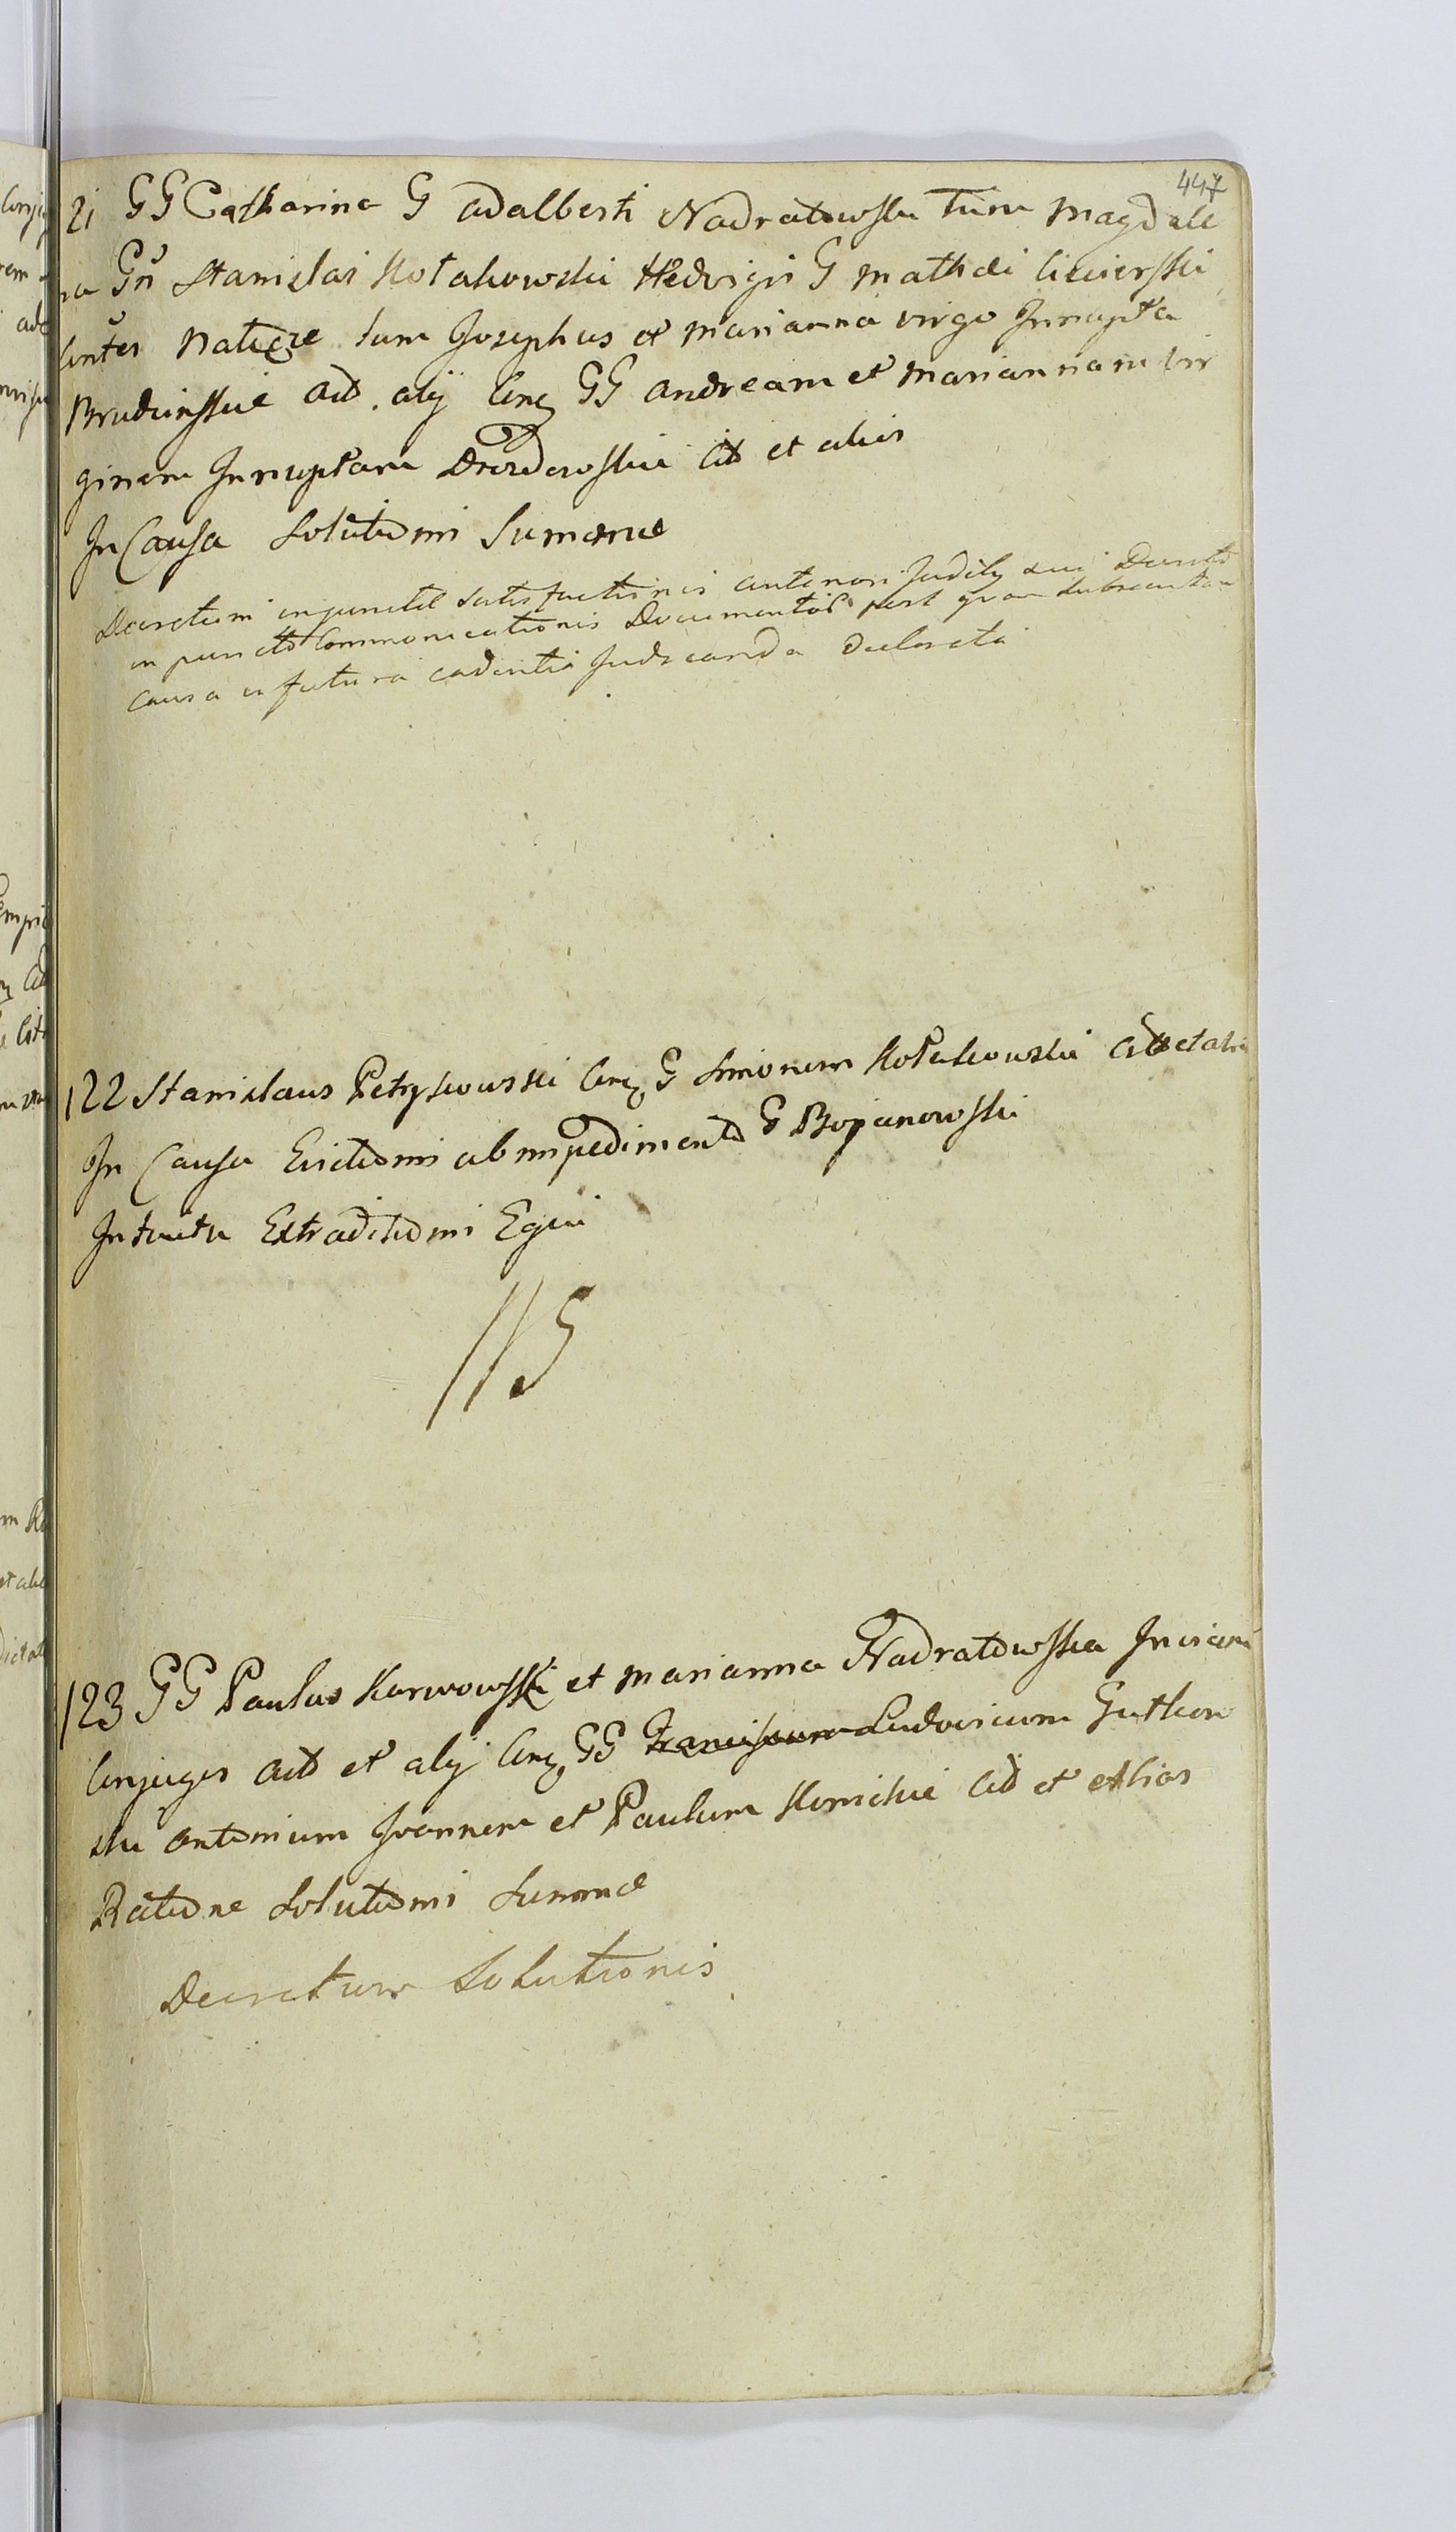 447
21 GG Catharina G adalberti Nadratowski Tum Magdale
na Gñ Stanislai Kołakowski Hedvigis G Mathei
Conter natiere tum Josephus et Marianna virgo Innupta
Brudzinskie act. alÿ Cim GG Andream et Mariannam vir
ginem Innuptam Drozdowskie cit et alios
In Causa Solutionis Summae
Decretum injunctae satisfactionis anteriori Judicÿ sui Decreto
in puncto Communicationis Documentor post quam subsecutam
causa in futura cadentia Judicanda declarata
122 Stanislaus Petrykowski Cim G Simonem Kołakowski Citt et alios
In Causa Evictionis ab impedimento G Bojanowski
Intuitu Extraditionis Equi
115
123 GG Paulus Karwowski et Marianna Nadratowska Invicem
Conjuges act et alÿ Cim GG Franciscum Ludovicum Gutkow
ski Antonium Joannem et Paulum Konickie Cit et Alios
Ratione Solutionis Summae
Decretum Solutionis